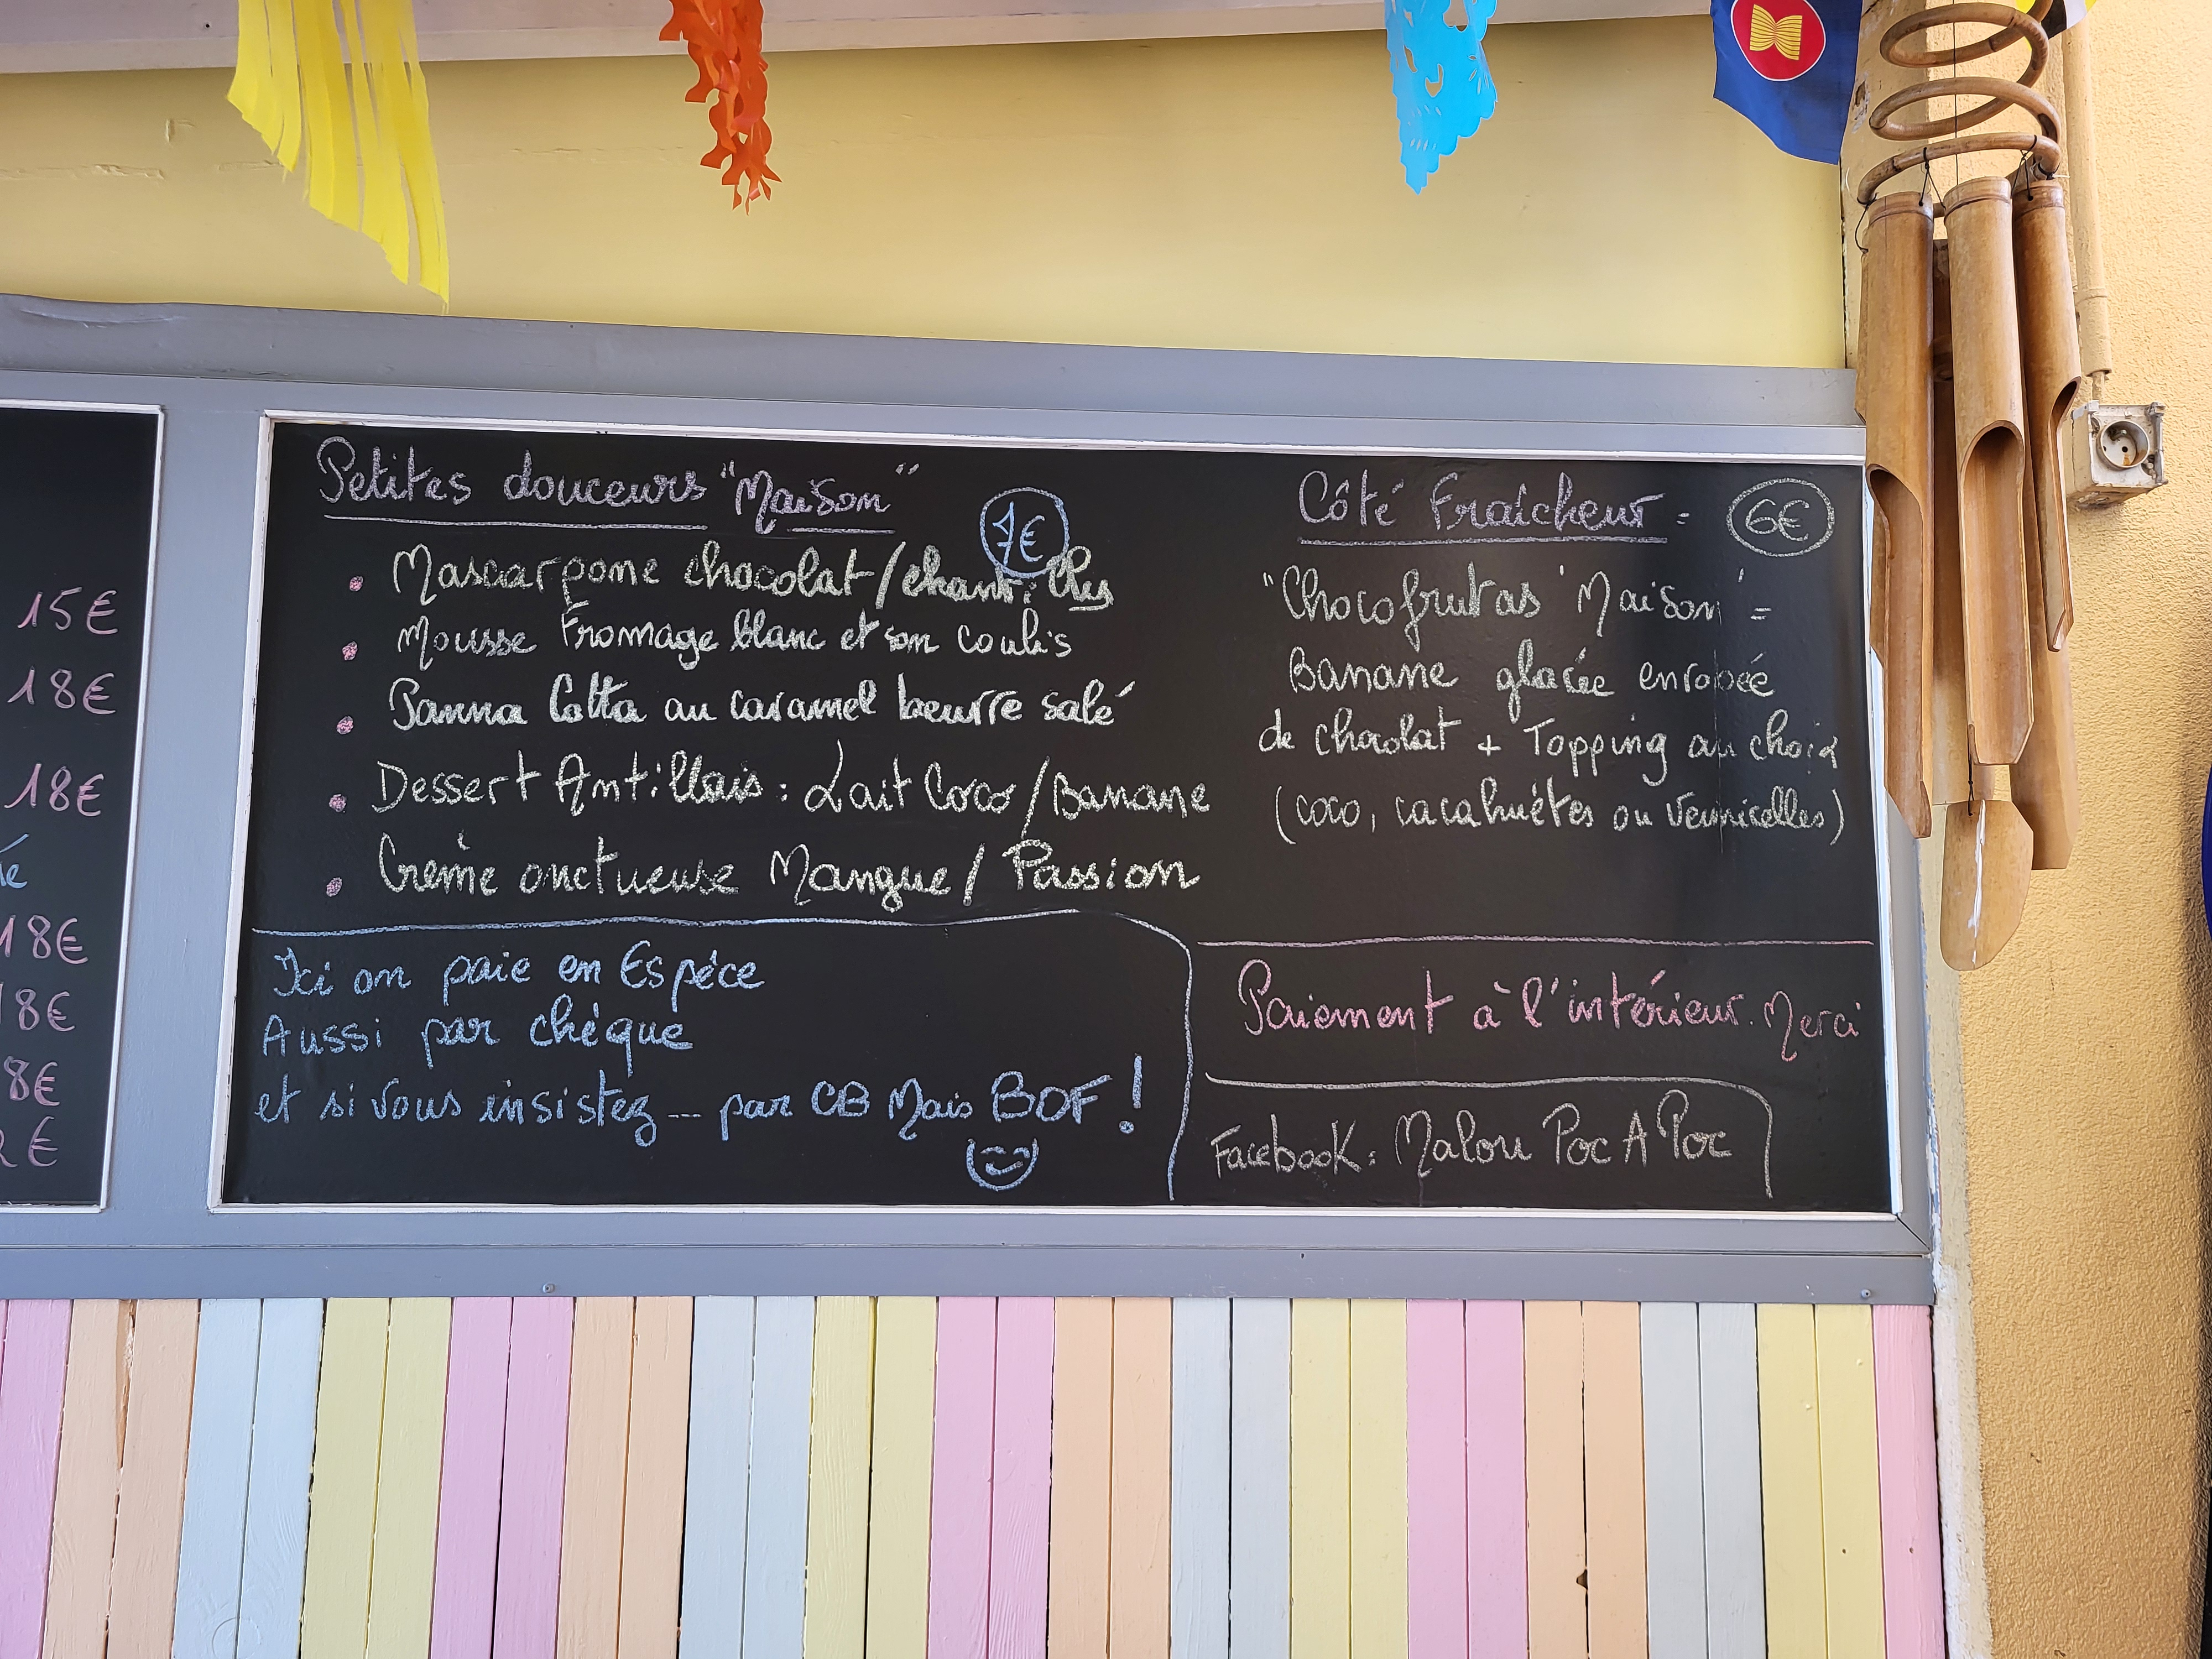 15€
18€
18€
18€
18€
8€
2€
Petites douceurs "Maison"
7€
Mascarpone chocolat/chantilly
Mousse Fromage blanc et son coulis
Panna Cotta au caramel beurre salé
Dessert Antillais : Lait Coco / Banane
Crème onctueuse Mangue / Passion
Ici on paie en Espèce
Aussi par chèque
et si vous insistez ... par CB Mais BOF !
Côté Fraîcheur = 6€
"Chocofrutas "Maison" =
Banane glacée enrobée
de chocolat + Topping au choix
(coco, cacahuètes ou vermicelles)
Paiement à l'intérieur. Merci
Facebook : Malou Poc A Poc